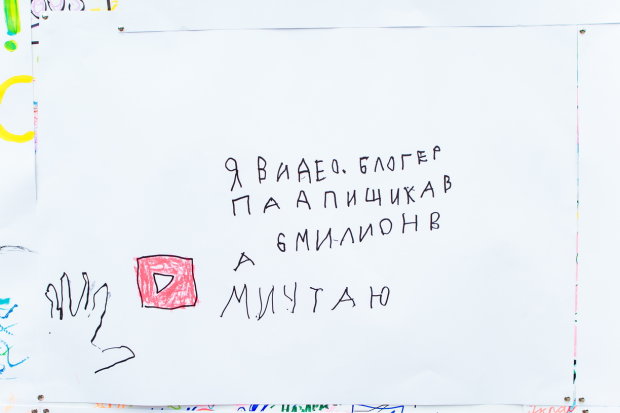 Я ВИДЕО. БЛОГЕР
ПААПИЩИКАВ
6 МИЛИОНВ
А
МИЧТАЮ